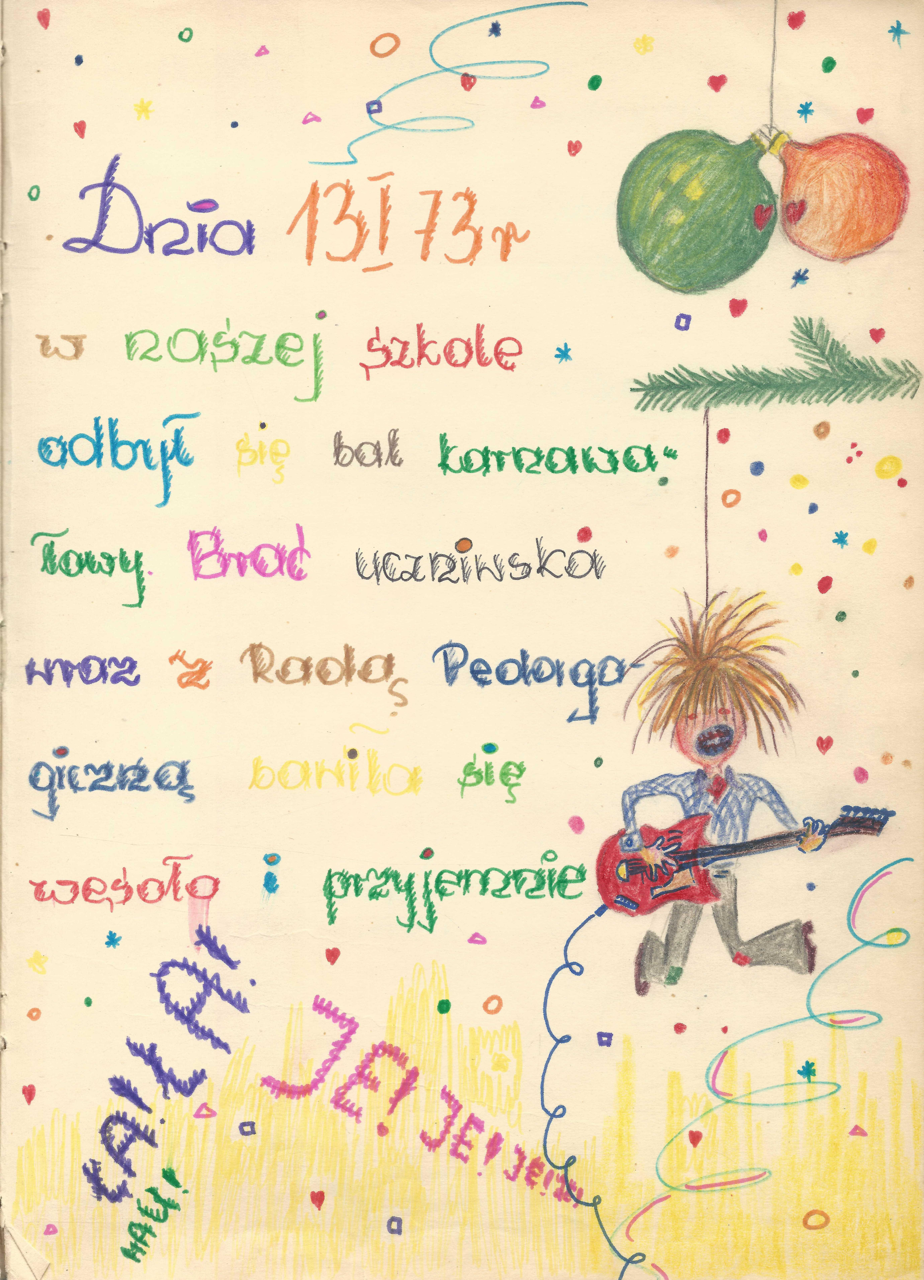 Dnia 13 I 73 r
w naszej szkole
odbył się bal karnawa-
łowy. Brać uczniwska
wraz z Radą Pedago-
giczną bawiła się
wesoło i przyjemnie
ŁA! ŁA!
JE! JE! JE!